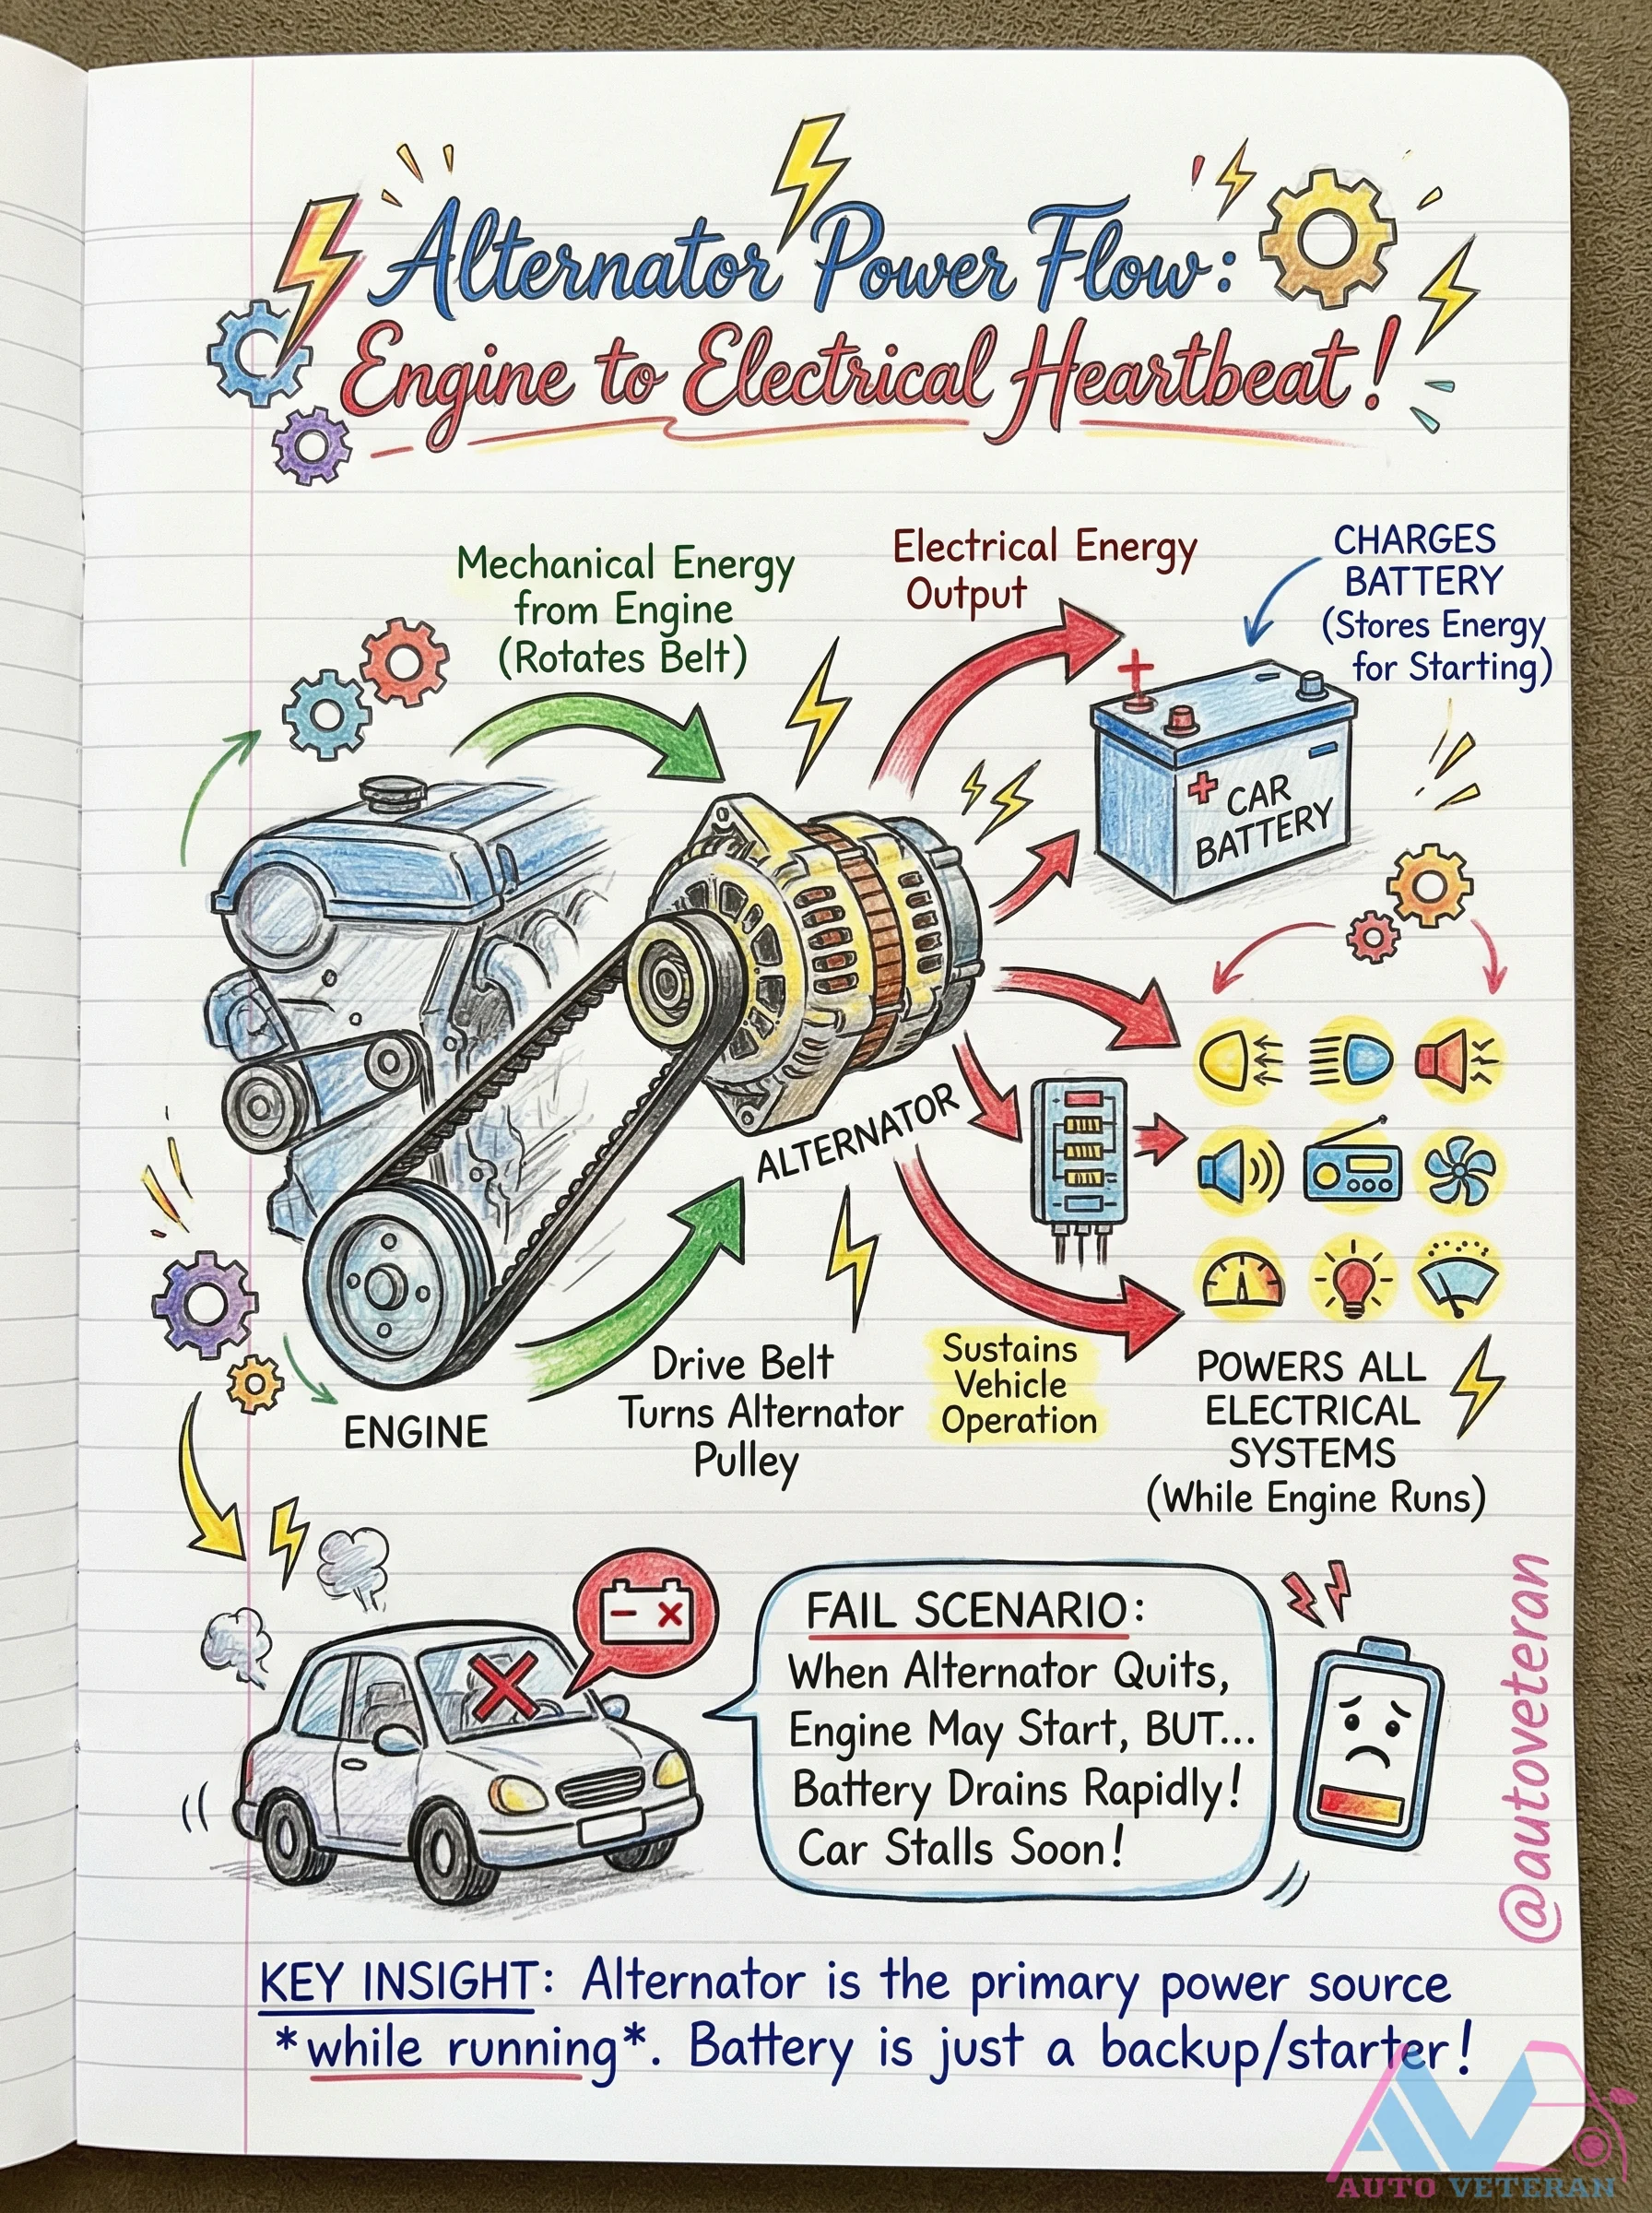 Alternator Power Flow:
Engine to Electrical Heartbeat!
Mechanical Energy
from Engine
(Rotates Belt)
Electrical Energy
Output
CHARGES
BATTERY
(Stores Energy
for Starting)
+
+ CAR
BATTERY
ALTERNATOR
ENGINE
Drive Belt
Turns Alternator
Pulley
Sustains
Vehicle
Operation
POWERS ALL
ELECTRICAL
SYSTEMS
(While Engine Runs)
FAIL SCENARIO:
When Alternator Quits,
Engine May Start, BUT...
Battery Drains Rapidly!
Car Stalls Soon!
@autoveteran
KEY INSIGHT: Alternator is the primary power source
*while running*. Battery is just a backup/starter!
AV
AUTO VETERAN